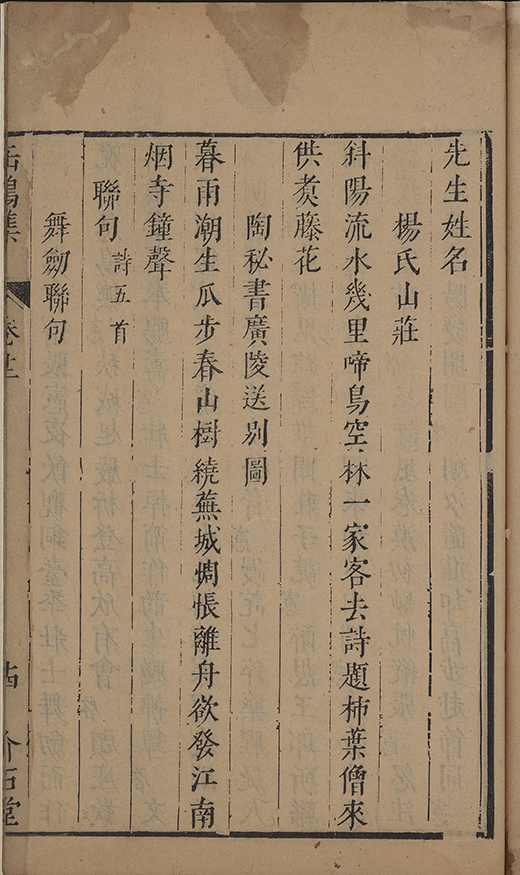 先生姓名
楊氏山莊
斜陽流水幾里啼鳥空林一家客去詩題柿葉僧來
供煮藤花
陶秘書廣陵送別圖
暮雨潮生瓜步春山樹繞蕪城惆悵離舟欲發江南
烟寺鐘聲
聯句 詩五首
舞劒聯句
缶鳴集 卷
介石堂